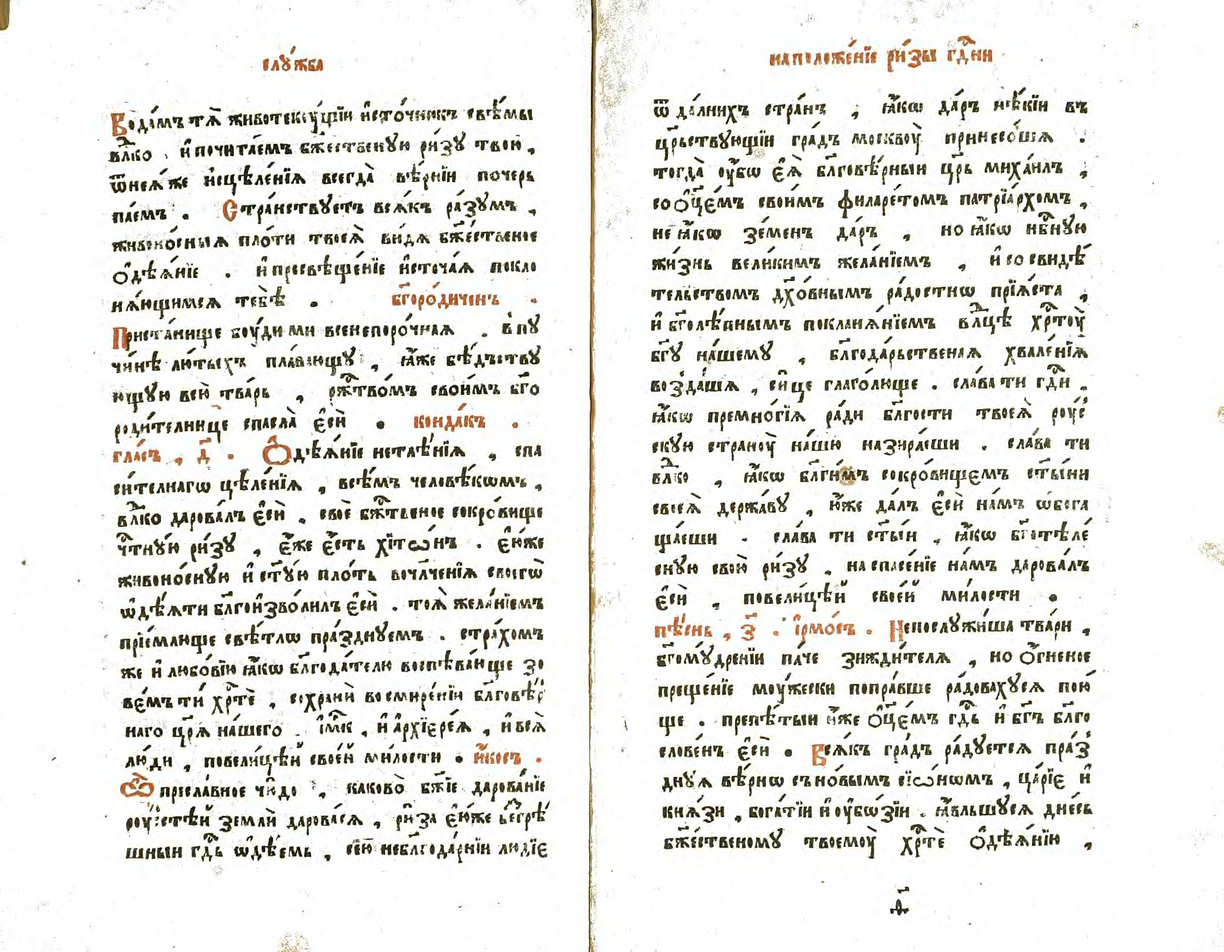 слꙋ́жба
Во́дꙋмъ тѧ̀ животекꙋ́щїи и҆сто́чникъ свѣ́мы
влⷣко . и҆почита́емъ бж҃ественꙋю ри́зꙋ твою̀ ,
ѿнеѧ́же и҆сцѣле́нїѧ всегда̀ вѣ́рнїи почер
па́емъ . Стра́нствꙋетъ всѧ́къ ра́зꙋмъ ,
живоно́сныѧ пло́ти твоеѧ̀ ви́дѧ бж҃е́ственое
ѻ҆дѣѧ́нїе . и҆ просвѣще́нїе и҆сточа́ѧ покло
нѧ́ющимсѧ тебѣ̀ . бг҃оро́диченъ .
Приста́нище бꙋ́ди ми всенепоро́чнаѧ . в̾пꙋ
чи́нѣ лю́тыхъ пла́вающꙋ , ꙗ҆́же бѣ́дъствꙋ
ющꙋю всю̀ тва́рь , ржⷭ҇тво́мъ свои́мъ бг҃о
роди́телнице спасла̀ є҆сѝ . конда́къ .
гла́съ , д҃ . Ѻ҆дѣѧ́нїе нетлѣ́нїѧ , спа
си́телнагѡ цѣле́нїѧ , всѣ́мъ человѣ́кѡмъ ,
влⷣко дарова́лъ є҆сѝ , своѐ бжⷭ҇твеное сокро́вище
чⷭ҇тнꙋ́ю ри́зꙋ , є҆́же є҆́сть хїтѡ́нъ . є҆ю́же
живоно́снꙋю и҆ ст҃ꙋ́ю пло́ть вочл҃че́нїѧ своегѡ̀
ѡ҆дѣ́ѧти бл҃гоизво́лилъ є҆сѝ . тоѧ̀ жела́нїемъ
прїе́млюще свѣ́тлѡ пра́зднꙋемъ . стра́хомъ
же и҆ любо́вїю ꙗ҆́кѡ бл҃года́телю воспѣва́юще зо
ве́мъ ти хрⷭ҇тѐ , сохранѝ восмире́нїи бл҃говѣ́р
наго црⷭ҇ѧ̀ на́шего . и҆́мкъ , и҆ а҆рхїере́ѧ , и҆ всѧ̀
лю́ди , повели́цѣй свое́й ми́лости . и҆́косъ .
Ѽ пресла́вное чю́до , каково̀ бж҃їе дарова́нїе
рꙋ́стѣй землѝ дарова́сѧ , ри́за є҆ю́же безгрѣ́
шныи гдⷭ҇ь ѡ҆дѣ́емь , сею̀ неблагода́рнїи лю́дїе
наположе́нїе ри́зы гдⷭ҇ни
ѿ да́лнихъ стра́нъ , ꙗ҆́кѡ да́ръ нѣ́кїи въ
црⷭ҇ьствꙋющїи гра́дъ москвꙋ̀ принесо́шѧ .
тогда̀ ᲂу҆́бѡ є҆ѧ̀ бл҃говѣ́рныи цр҃ь миха́илъ ,
со ѻ҆ц҃е́мъ свои́мъ филаре́томъ патрїа́рхомъ ,
не ꙗ҆́кѡ зе́менъ да́ръ , но ꙗ҆́кѡ нб҃нꙋю
жи́знь вели́кимъ жела́нїемъ , и҆ со свидѣ́
тельствомъ дх҃о́внымъ ра́достнѡ прїѧ́ста ,
и҆ бг҃олѣ́пнымъ поклонѧ́нїемъ влⷣцѣ хрⷭ҇тꙋ̀
бг҃ꙋ на́шемꙋ , бл҃года́рьственаѧ хвале́нїѧ
воз̾да́шѧ , си́це глаго́люще . сла́ва ти гдⷭ҇и ,
ꙗ҆́кѡ премно́гїѧ ра́ди бл҃гости твоеѧ̀ рꙋ́с
скꙋю странꙋ̀ на́шю назира́еши . сла́ва ти
влⷣко , ꙗ҆́кѡ бл҃ги́мъ сокро́вищемъ ст҃ы́ни
своеѧ̀ держа́вꙋ , ю҆́же да́лъ є҆сѝ на́мъ ѡ҆бога
ща́еши . сла́ва ти ст҃ы́и , ꙗ҆́кѡ бг҃отѣле́
снꙋю свою̀ ри́зꙋ , на спасе́нїе на́мъ дарова́лъ
є҆сѝ , повели́цѣй свое́й ми́лости .
пѣ́снь , з҃ . і҆рмо́съ . Непослꙋжи́ша тва́ри ,
бг҃омꙋ́дренїи па́че зижди́телѧ , но ѻ҆́гненое
преще́ніе мꙋ́жески попра́вше ра́довахꙋсѧ пою́
ще . препѣ́тыи и҆́же ѻ҆ц҃е́мъ гдⷭ҇ь и҆ бг҃ъ бл҃го
слове́нъ є҆сѝ . Всѧ́къ гра́дъ ра́дꙋетсѧ пра́з
днꙋѧ вѣ́рнѡ съ но́вымъ сїѡ́номъ , ца́рїе и҆
кнѧ́зи , бога́тїи и҆ ᲂу҆бѡ́зїи . ꙗ҆́вльшꙋсѧ дне́сь
бж҃е́ственомꙋ твоемꙋ̀ хрⷭ҇тѐ ѻ҆дѣѧ́нїю ,